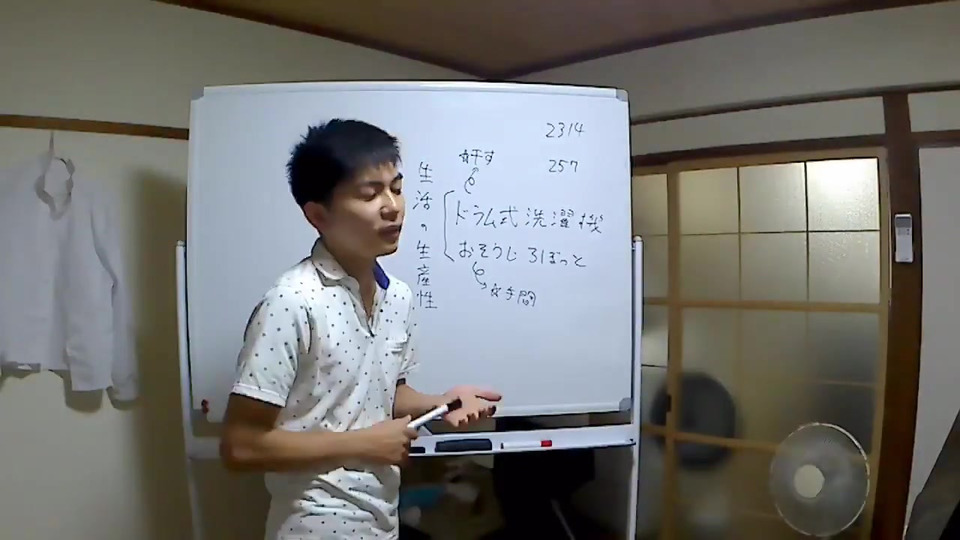 2314
257
干す
生活の生産性
ドラム式洗濯機
おそうじろぼっと
手間